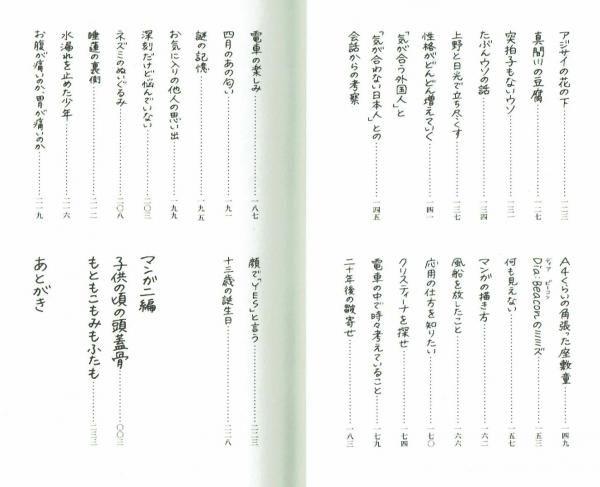 アジサイの花の下……一二三
真間川の豆腐……一二七
突拍子もないウソ……一三一
たぶんウソの話……一三四
上野と日光で立ち尽くす……一三七
性格がどんどん増えていく……一四一
「気が合う外国人」と
「気が合わない日本人」との
会話からの考察……一四五
A4くらいの角張った座敷童……一四九
ディア ビーコン
Dia:Beaconのミミズ……一五三
何も見えない……一五七
マンガの描き方……一六二
風船を放したこと……一六六
応用の仕方を知りたい……一七〇
クリスティーナを探せ……一七四
電車の中で時々考えていること……一七九
二十年後の皺寄せ……一八三
電車の楽しみ……一八七
四月のあの匂い……一九一
謎の記憶……一九五
お気に入りの他人の思い出……一九九
深刻だけど悩んでいない……二〇三
ネズミのぬいぐるみ……二〇八
睡蓮の裏側……二一二
水漏れを止めた少年……二一六
お腹が痛いのか、胃が痛いのか……二一九
顔で「YES」と言う……二二三
十三歳の誕生日……二二八
マンガ二編
子供の頃の頭蓋骨……〇〇三
もともこもみもふたも……二三三
あとがき